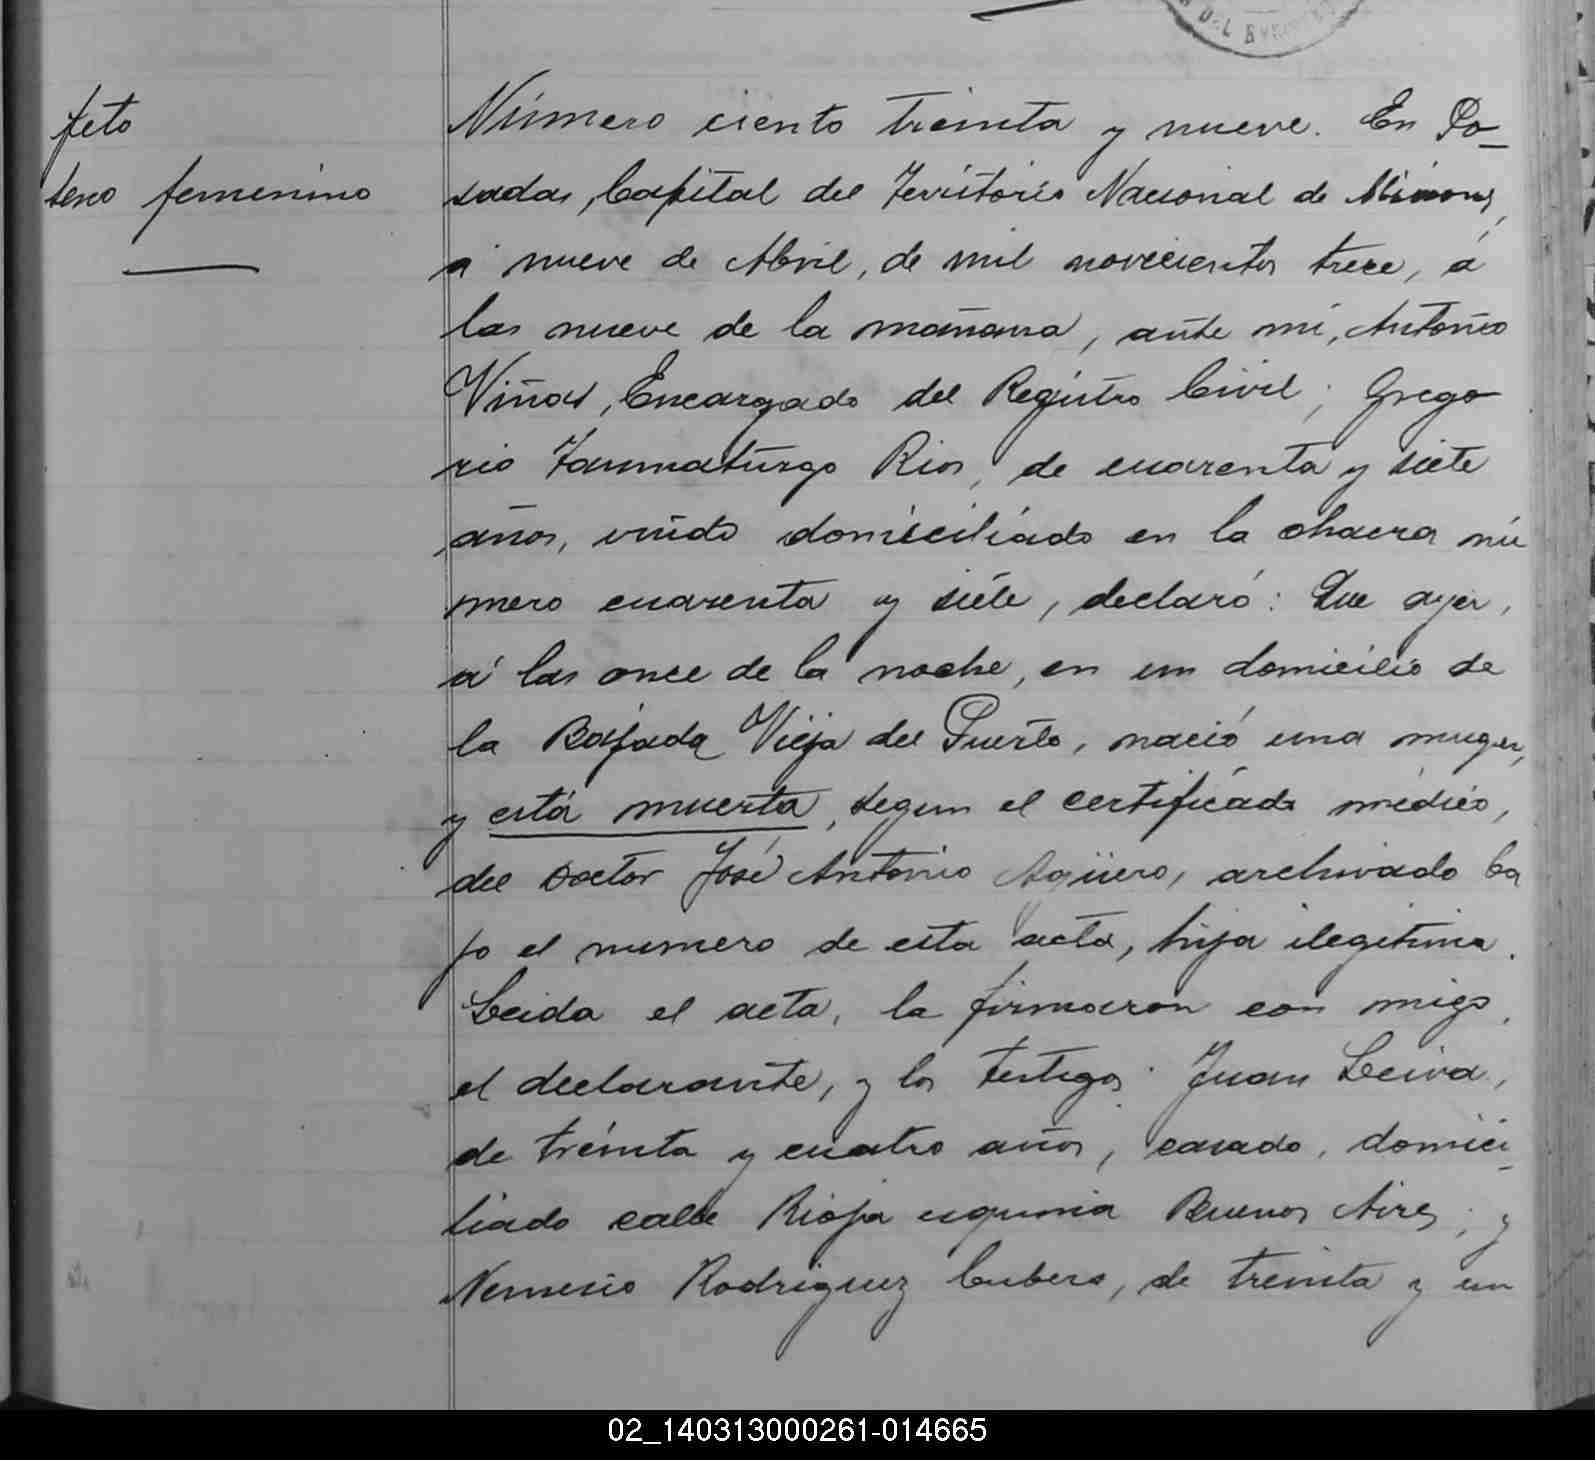 DEL
feto
sexo femenino
Número ciento treinta y nueve. En Po-
sadas, Capital del Territorio Nacional de Misiones,
a nueve de Abril, de mil novecientos trece, á
las nueve de la mañana, ante mí, Antonio
Viñas, Encargado del Registro Civil; Grego
rio Taumaturgo Rios, de cuarenta y siete
años, viudo domiciliado en la chacra nú
mero cuarenta y siete, declaró: Que ayer,
á las once de la noche, en un domicilio de
la Bajada Vieja del Puerto, nació una muger,
y está muerta, segun el certificado médico,
del Doctor José Antonio Agüero, archivado ba
jo el numero de esta acta, hija ilegitima.
Leida el acta, la firmaron con migo,
el declarante, y los testigos: Juan Leiva,
de treinta y cuatro años, casado, domici-
liado calle Rioja esquina Buenos Aires; y
Nemesio Rodriguez Cubero, de treinta y un
02_140313000261-014665